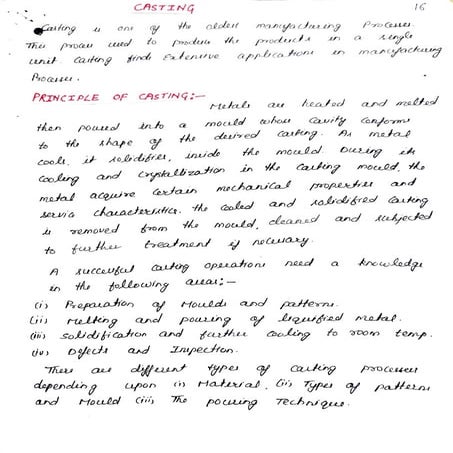 CASTING
16
Casting is one of the oldest manufacturing Processes.
This process used to produce the products in a single
unit. Casting finds Extensive applications in manufacturing
Processes.
PRINCIPLE OF CASTING:-
Metals are heated and melted
then poured into a mould whose cavity conforms
to the shape of the desired casting. As metal
cools, it solidifies, inside the mould. During its
cooling and crystallization in the casting mould, the
metal acquire certain mechanical properties and
service characteristics. the cooled and solidified casting
is removed from the mould, cleaned and subjected
to further treatment if necessary.
A successful casting operations need a knowledge
in the following areas:-
(i) Preparation of Moulds and patterns.
(ii) Melting and pouring of liquified metal.
(iii) solidification and further cooling to room temp.
(iv) Defects and Inspection.
There are different types of casting processes
depending upon (i) Material, (ii) Types of patterns
and Mould (iii) The pouring Technique.